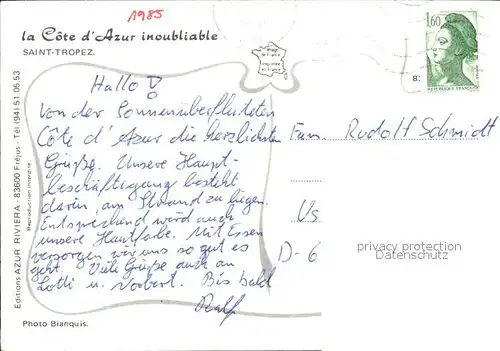 1985
la Côte d'Azur inoubliable
SAINT-TROPEZ.
1,60
REPUBLIQUE FRANÇAISE
Hallo!
Von der Sonnenüberfluteten
Côte d'Azur die herzlichsten
Grüße. Unsere Haupt-
beschäftigung besteht
darin, am Strand zu liegen.
Entsprechend wird auch
unsere Hautfarbe. Mit Essen
versorgen wir uns so gut es
geht. Viele Grüße auch an
Lotti u. Norbert. Bis bald
Ralf
Fam. Rudolf Schmidt
Us
D-6
privacy protection
Datenschutz
Editions AZUR RIVIERA - 83600 Fréjus - Tél. (94) 51.05.53
Reproduction interdite
Photo Bianquis.